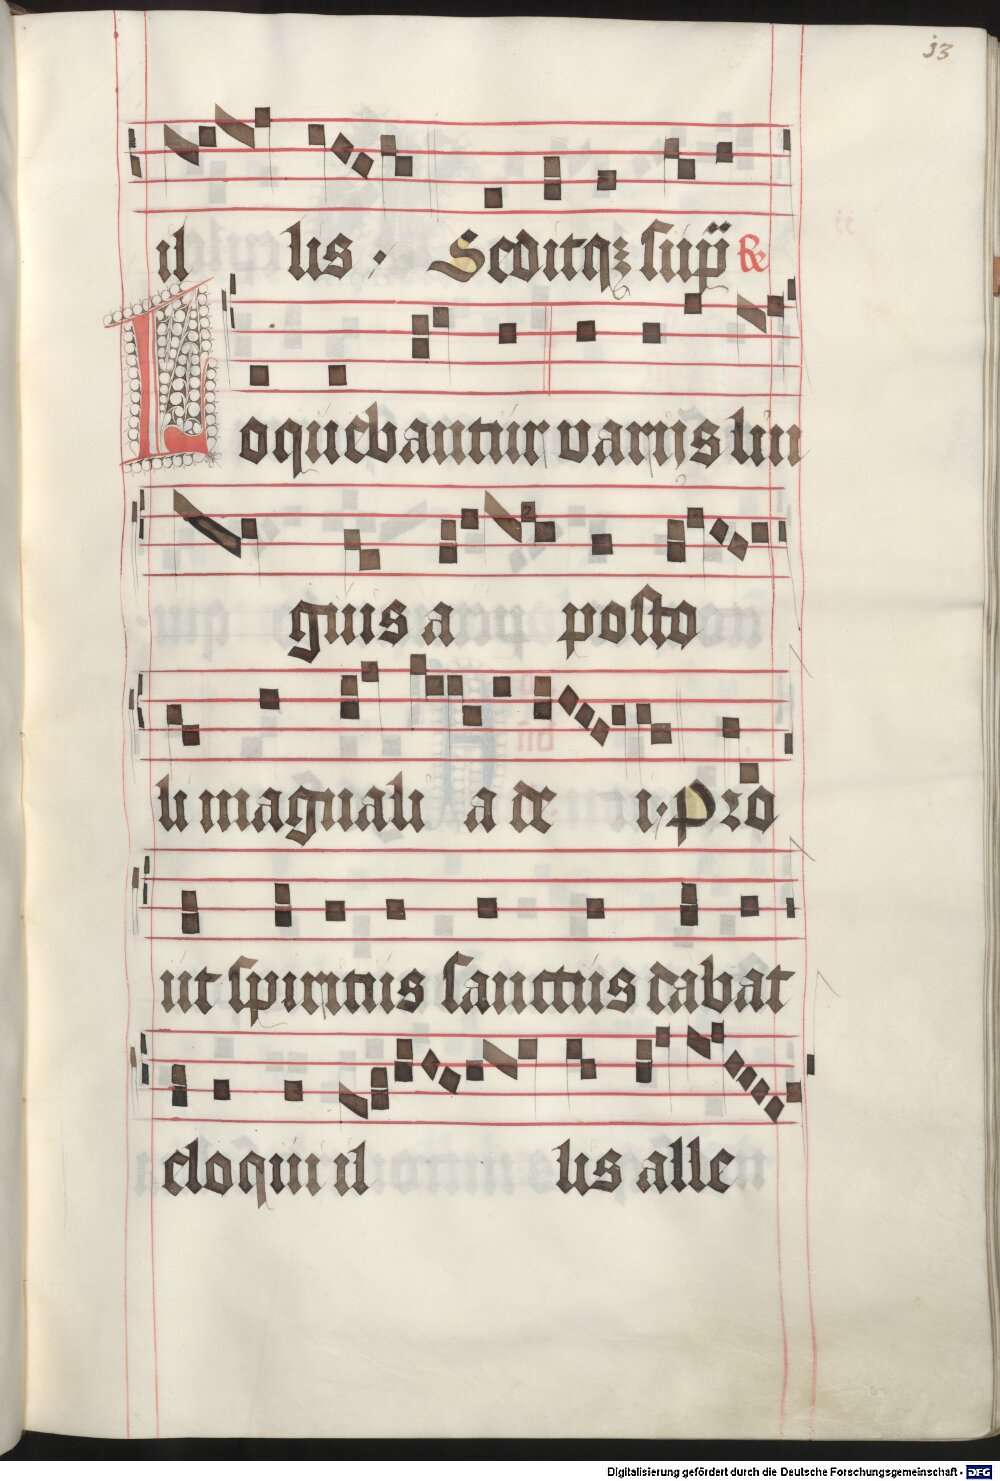 33
il lis · Seditqꝫ sup̈ Re
Loquebantur varijs lin
guis a posto
li magnali a de i · Pro
ut spiritus sanctus dabat
eloqui il lis alle
Digitalisierung gefördert durch die Deutsche Forschungsgemeinschaft - DFG